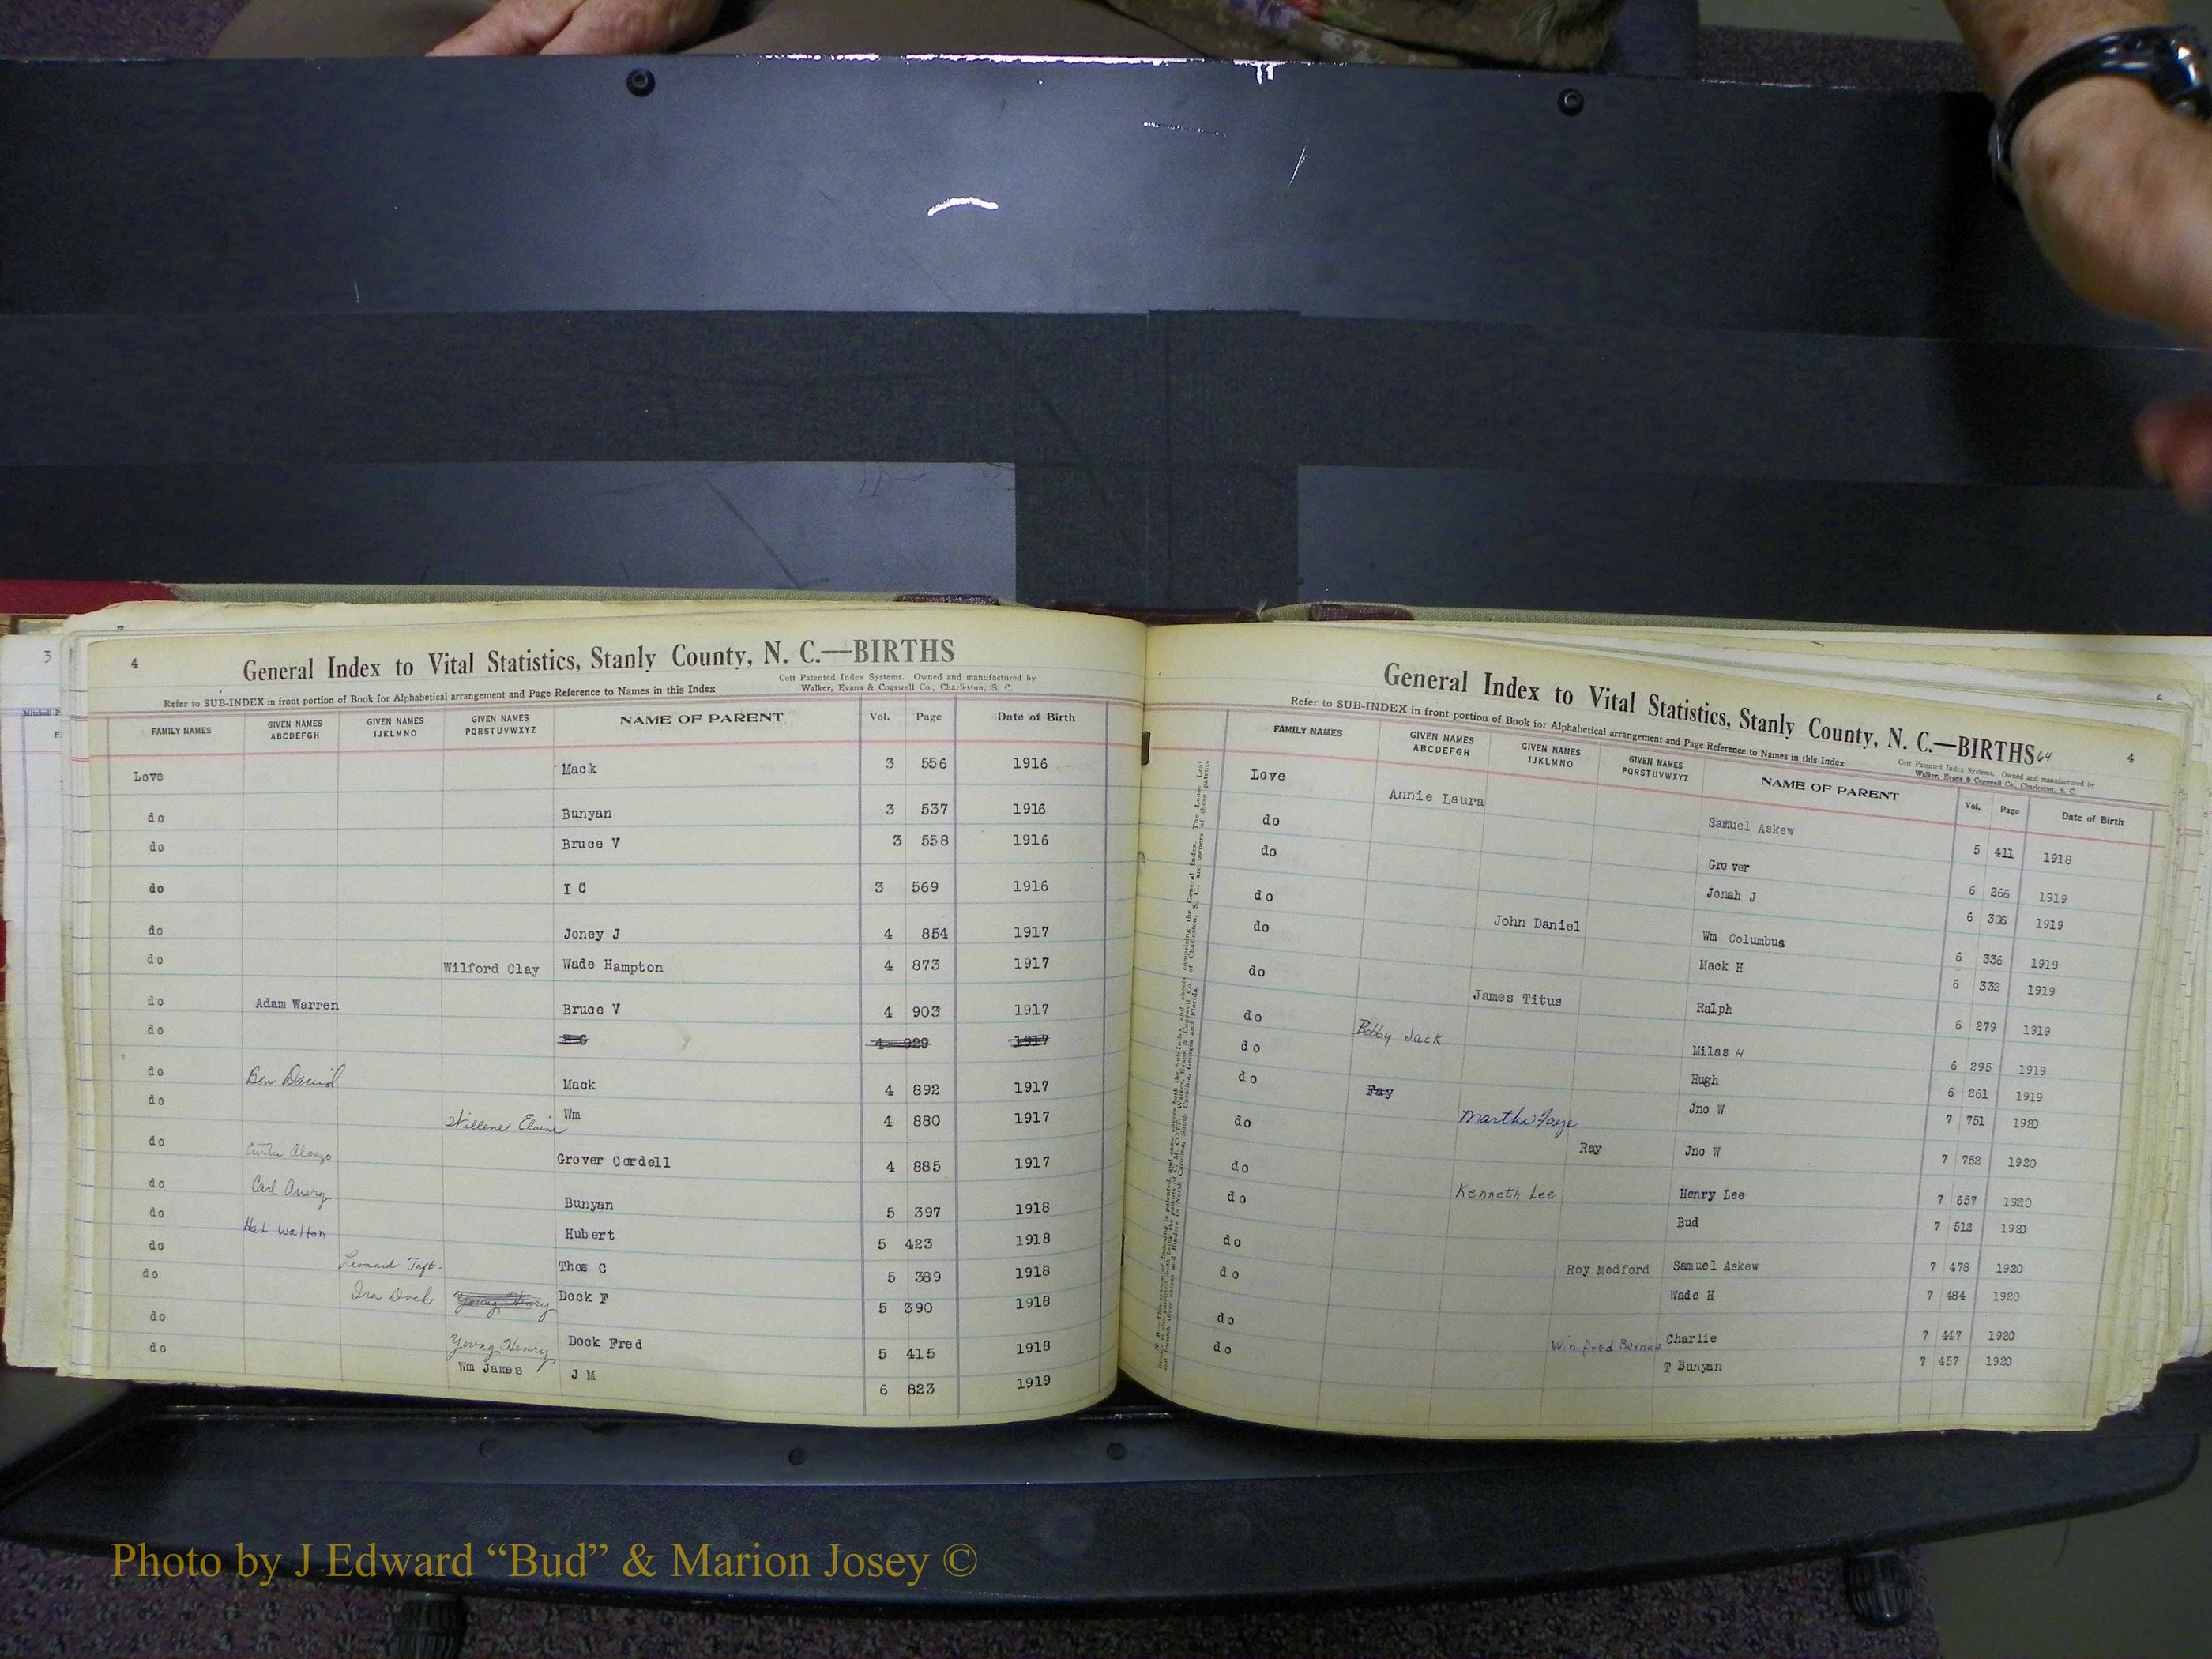 3
4
General Index to Vital Statistics, Stanly County, N. C.—BIRTHS
Refer to SUB-INDEX in front portion of Book for Alphabetical arrangement and Page Reference to Names in this Index
Cott Patented Index Systems. Owned and manufactured by
Walker, Evans & Cogswell Co., Charleston, S. C.
FAMILY NAMES GIVEN NAMES ABCDEFGH GIVEN NAMES IJKLMNO GIVEN NAMES PQRSTUVWXYZ NAME OF PARENT Vol. Page Date of Birth
Love Mack 3 556 1916
do Bunyan 3 537 1916
do Bruce V 3 558 1916
do I C 3 569 1916
do Joney J 4 854 1917
do Wilford Clay Wade Hampton 4 873 1917
do Adam Warren Bruce V 4 903 1917
do 4 929 1917
do Ben David Mack 4 892 1917
do Willene Elaine Wm 4 880 1917
do Grover Cordell 4 885 1917
do Carl Avery Bunyan 5 397 1918
do Hal Walton Hubert 5 423 1918
do Leonard Taft Thos C 5 389 1918
do Ira Dock Young Henry Dock F 5 390 1918
do Young Henry Dock Fred 5 415 1918
do Wm James J M 6 823 1919
General Index to Vital Statistics, Stanly County, N. C.—BIRTHS 64
4
Refer to SUB-INDEX in front portion of Book for Alphabetical arrangement and Page Reference to Names in this Index
Cott Patented Index Systems. Owned and manufactured by
Walker, Evans & Cogswell Co., Charleston, S. C.
FAMILY NAMES GIVEN NAMES ABCDEFGH GIVEN NAMES IJKLMNO GIVEN NAMES PQRSTUVWXYZ NAME OF PARENT Vol. Page Date of Birth
Love Annie Laura Samuel Askew 5 411 1918
do Grover 6 266 1919
do Jonah J 6 306 1919
do John Daniel Wm Columbus 6 336 1919
do Mack H 6 332 1919
do James Titus Ralph 6 279 1919
do Bobby Jack Milas H 6 295 1919
do Hugh 6 261 1919
do Fay Martha Faye Jno W 7 751 1920
do Ray Jno W 7 752 1920
do Kenneth Lee Henry Lee 7 657 1920
do Bud 7 512 1920
do Roy Medford Samuel Askew 7 478 1920
do Wade H 7 484 1920
do Charlie 7 447 1920
do Winifred T Bunyan 7 457 1920
Photo by J Edward “Bud” & Marion Josey ©